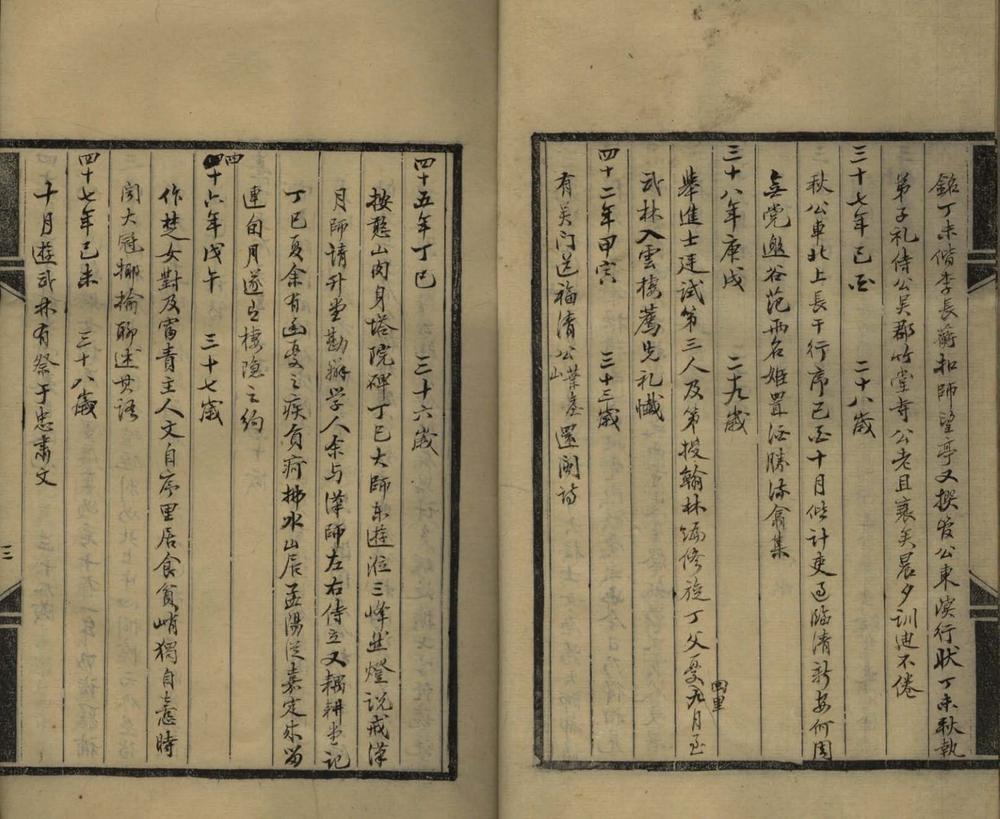 銘丁未偕李長蘅扣師望亭又撰管公東溟行狀丁未秋執
弟子礼侍公吴郡竹堂寺公老且衰矣晨夕訓迪不倦
三十七年己酉　二十八歲
秋公車北上長干行序己酉十月偕計吏過臨清新安何周
無党邀谷范两名姬置酒勝流翕集
三十八年庚戌　二十九歲
舉進士廷試第三人及第授翰林編修旋丁父憂九月至
四里
武林入雲棲薦先礼懺
四十二年甲寅　三十三歲
有吴门送福清公葉臺山還閩詩
四十五年丁巳　三十六歲
按憨山肉身塔院碑丁巳大師东遊涖三峰燃燈說戒漢
月師請升堂勘辦学人余与漢師左右侍立又耦耕堂记
丁巳夏余有幽憂之疾負疴拂水山居孟陽從嘉定來留
連旬月遂占棲隐之約
四十六年戊午　三十七歲
作楚女對及富青主人文自序里居食貧峭獨自憙時
闻大冠揶揄聊述其語
四十七年己未　三十八歲
十月遊武林有祭于忠肅文
三